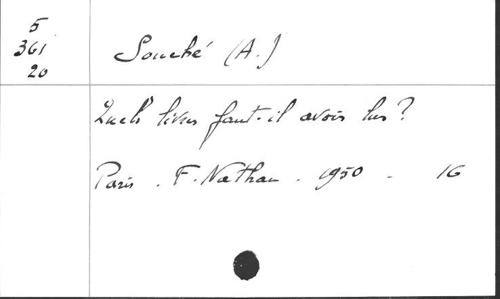 5
361
20
Souché (A.)
Quels livres faut-il avoir lus ?
Paris . F. Nathan . 1950 . 16